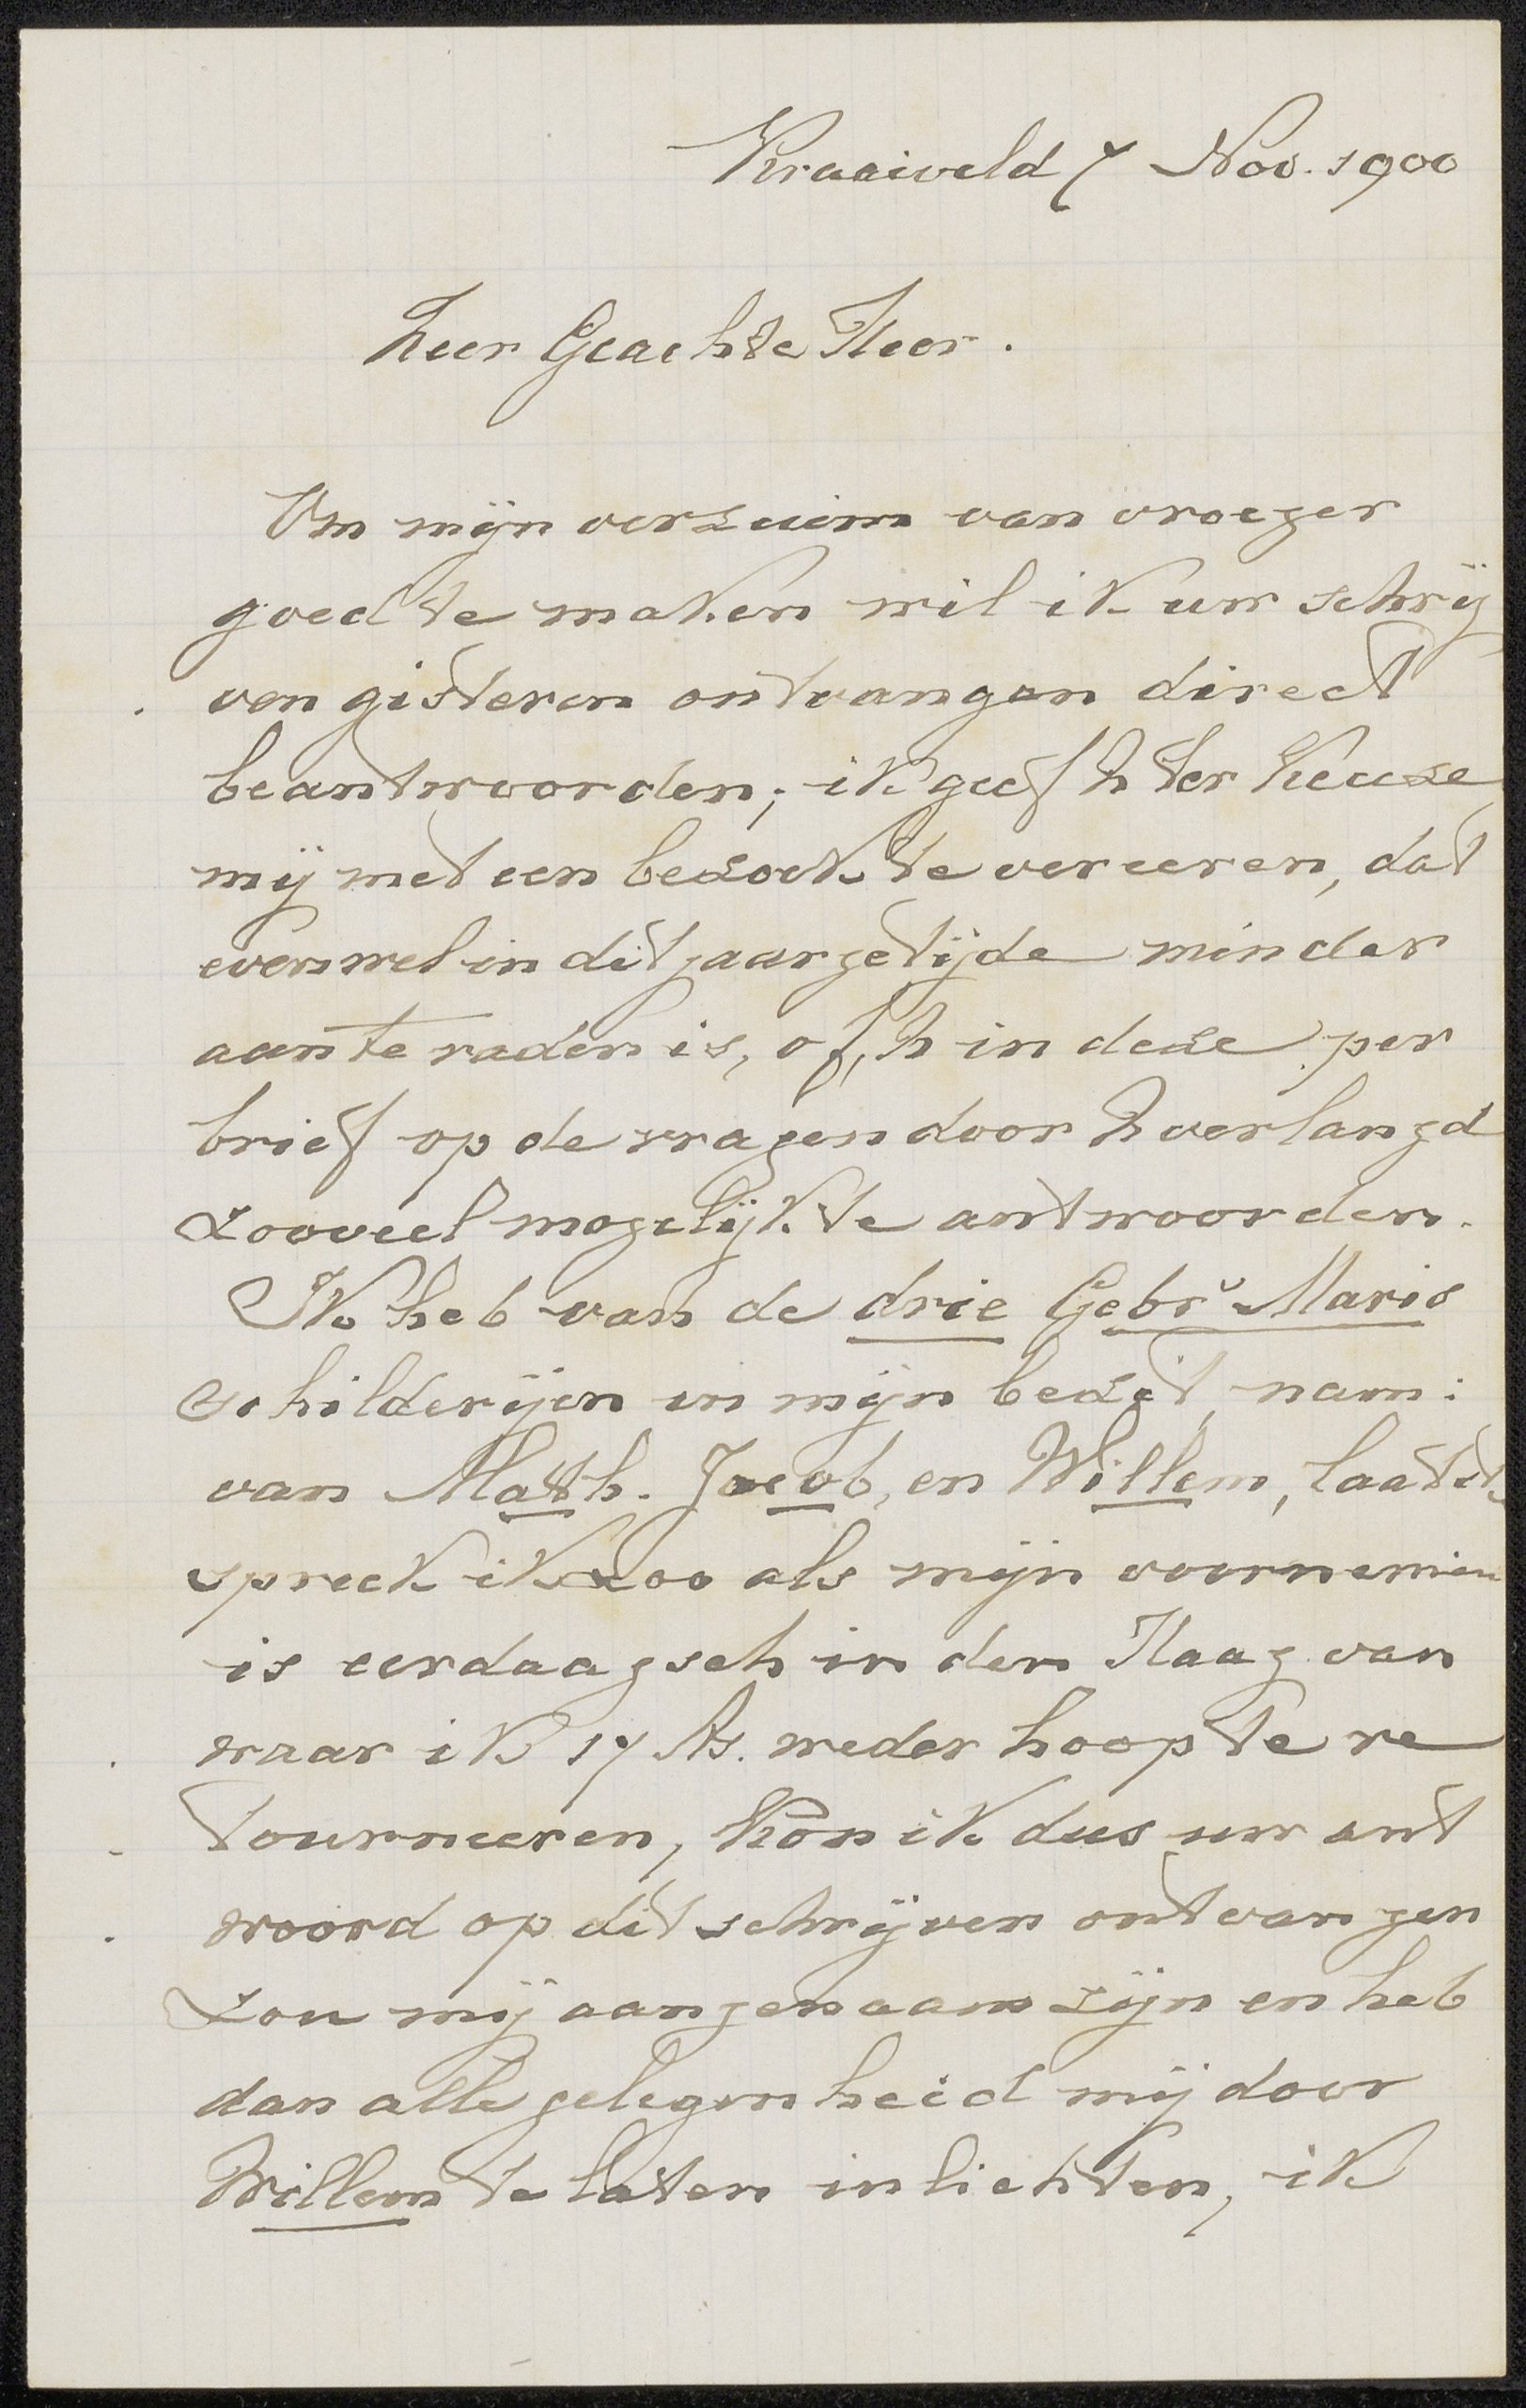 Kraaiveld 7 Nov. 1900
Zeer Geachte Heer.
Om mijn verzuim van vroeger
goed te maken wil ik uw schrij
ven gisteren ontvangen direct
beantwoorden; ik geef U ter keuze
mij met een bezoek te vereeren, dat
evenwel in dit jaargetijde minder
aan te raden is, of, U in deze per
brief op de vragen door U verlangd
zooveel mogelijk te antwoorden.
Ik heb van de drie Gebrs Maris
schilderijen in mijn bezit, nam:
van Math. Jacob, en Willem, laatst
spreek ik zoo als mijn voornemen
is eerdaagsch in den Haag van
waar ik 17 As. weder hoop te re
tourneeren, kon ik dus uw ant
woord op dit schrijven ontvangen
zou mij aangenaam zijn en heb
dan alle gelegenheid mij door
Willem te laten inlichten, ik